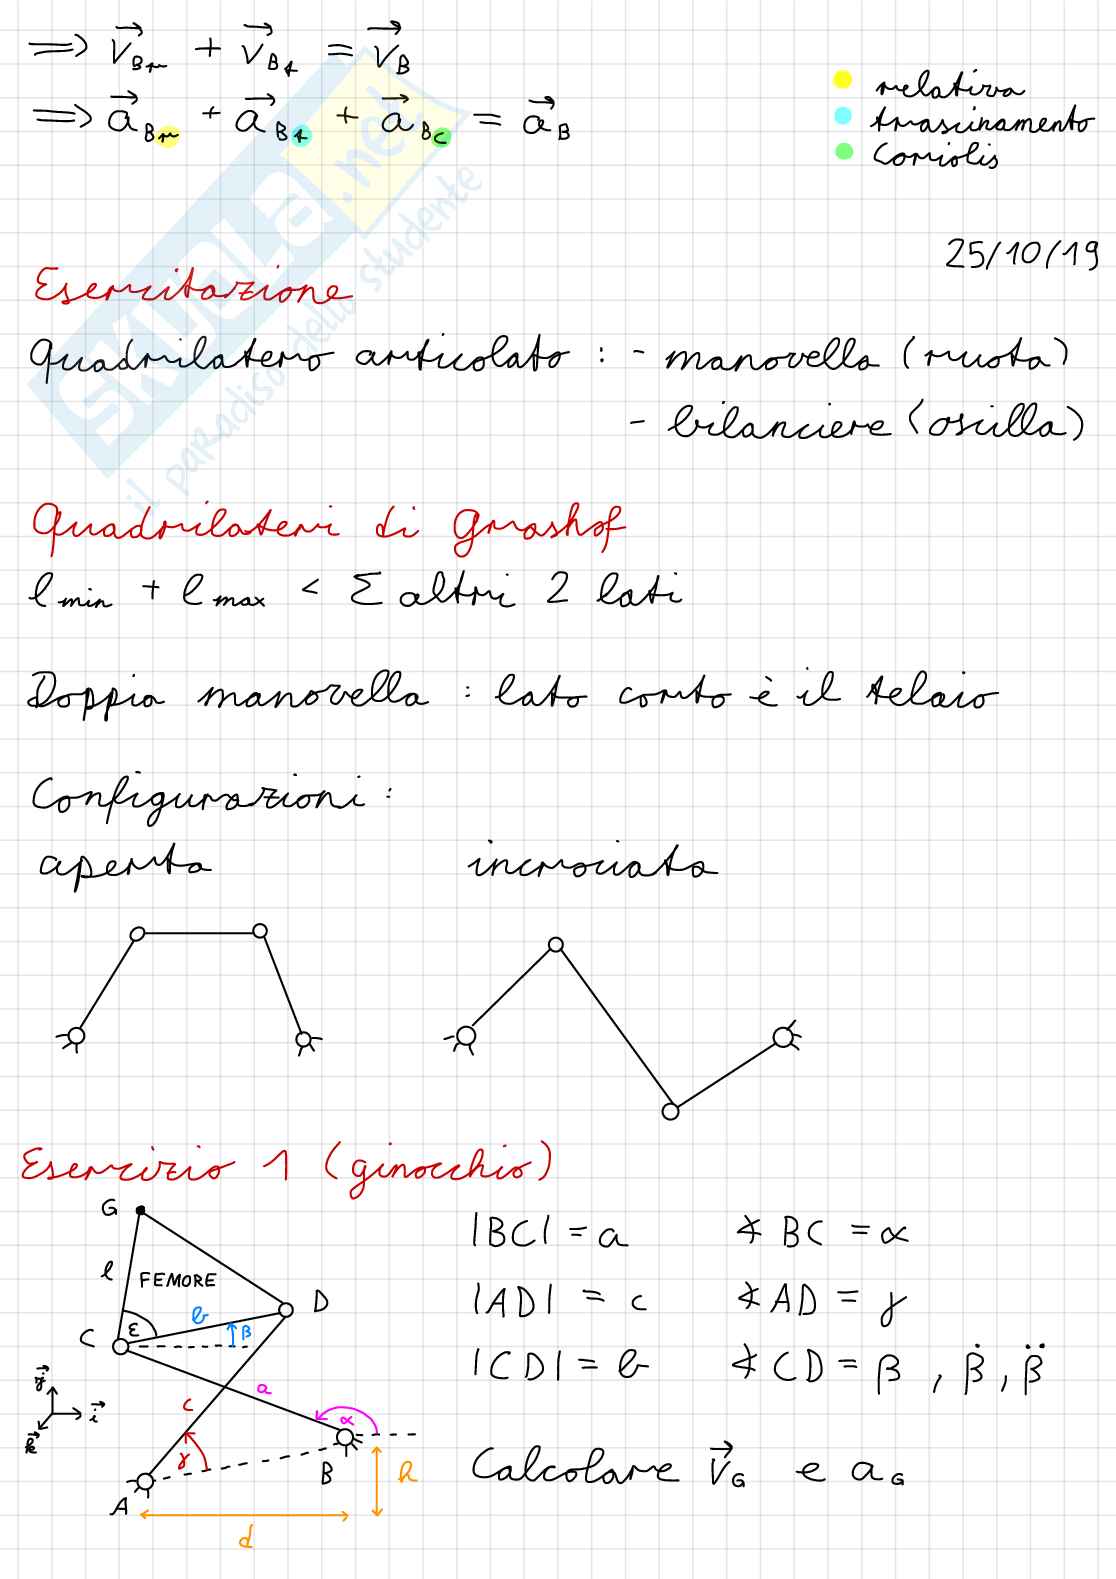 ⟹ v⃗Br + v⃗Bt = v⃗B
⟹ a⃗Br + a⃗Bt + a⃗Bc = a⃗B
relativa
trascinamento
Coriolis
SKUOLA.net
il paradiso dello studente
25/10/19
Esercitazione
Quadrilatero articolato : - manovella (ruota)
- bilanciere (oscilla)
Quadrilateri di Grashof
lmin + lmax < Σ altri 2 lati
Doppia manovella : lato corto è il telaio
Configurazioni :
aperta incrociata
Esercizio 1 (ginocchio)
G
l
FEMORE
D
b
C
ε
β
a
j⃗
i⃗
k⃗
c
α
γ
B
h
A
d
|BC| = a ∢ BC = α
|AD| = c ∢ AD = γ
|CD| = b ∢ CD = β , β̇ , β̈
Calcolare v⃗G e aG